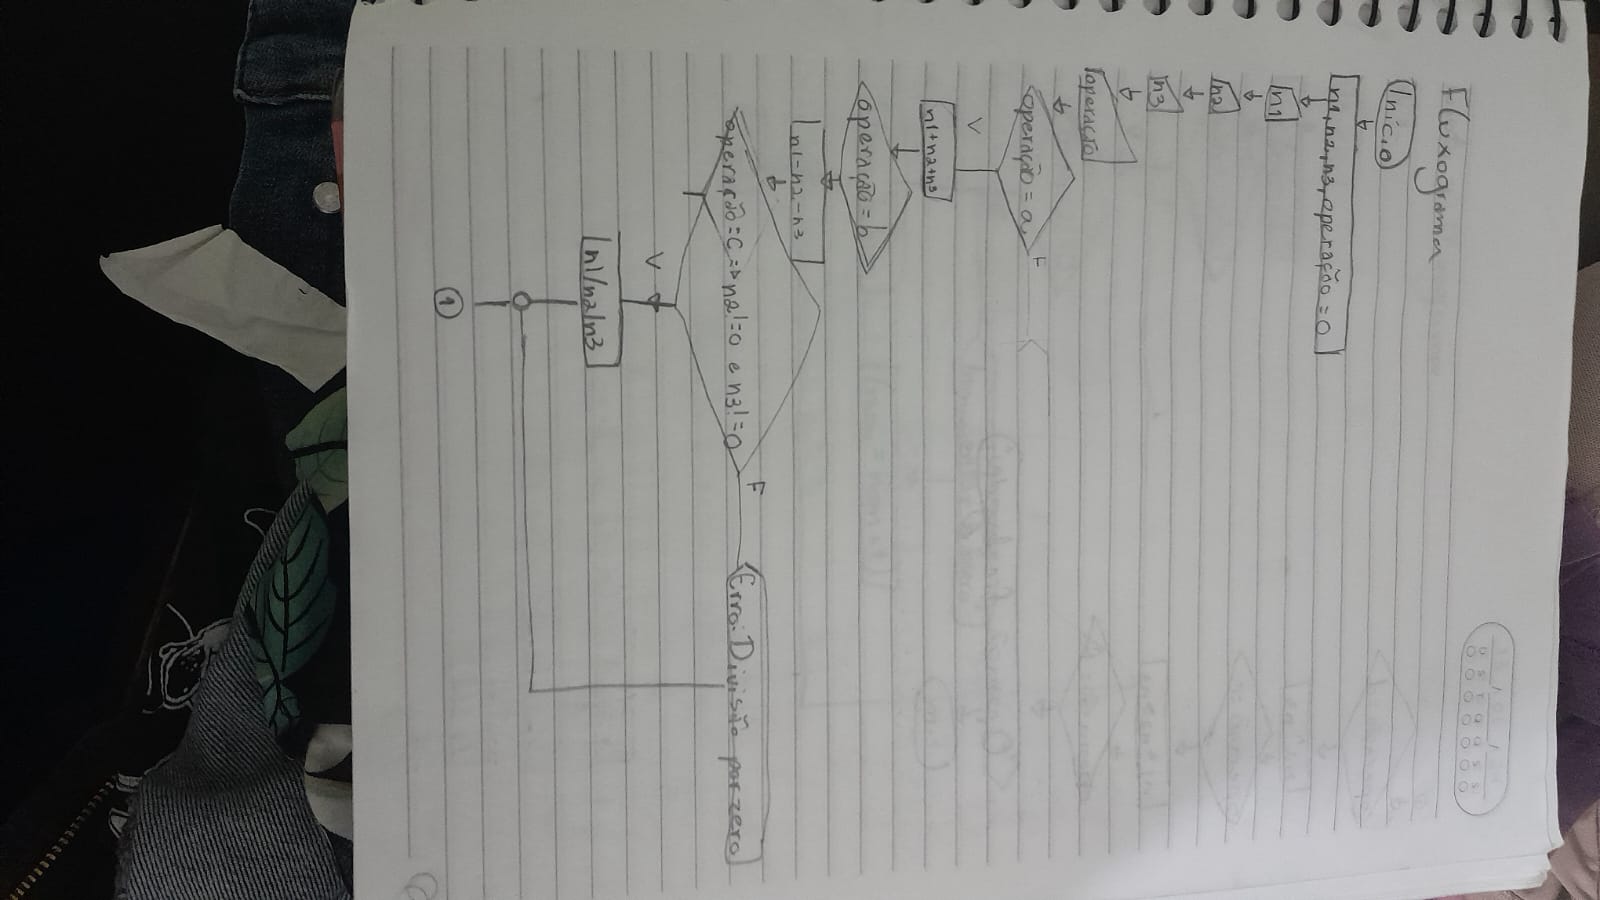 Fluxograma
Início
n1,n2,n3,operação = 0
n1
n2
n3
operação
operação = a
F
V
n1+n2+n3
operação = b
n1-n2-n3
operação = c => n2!=0 e n3!=0
F
Erro: Divisão por zero
V
n1/n2/n3
1